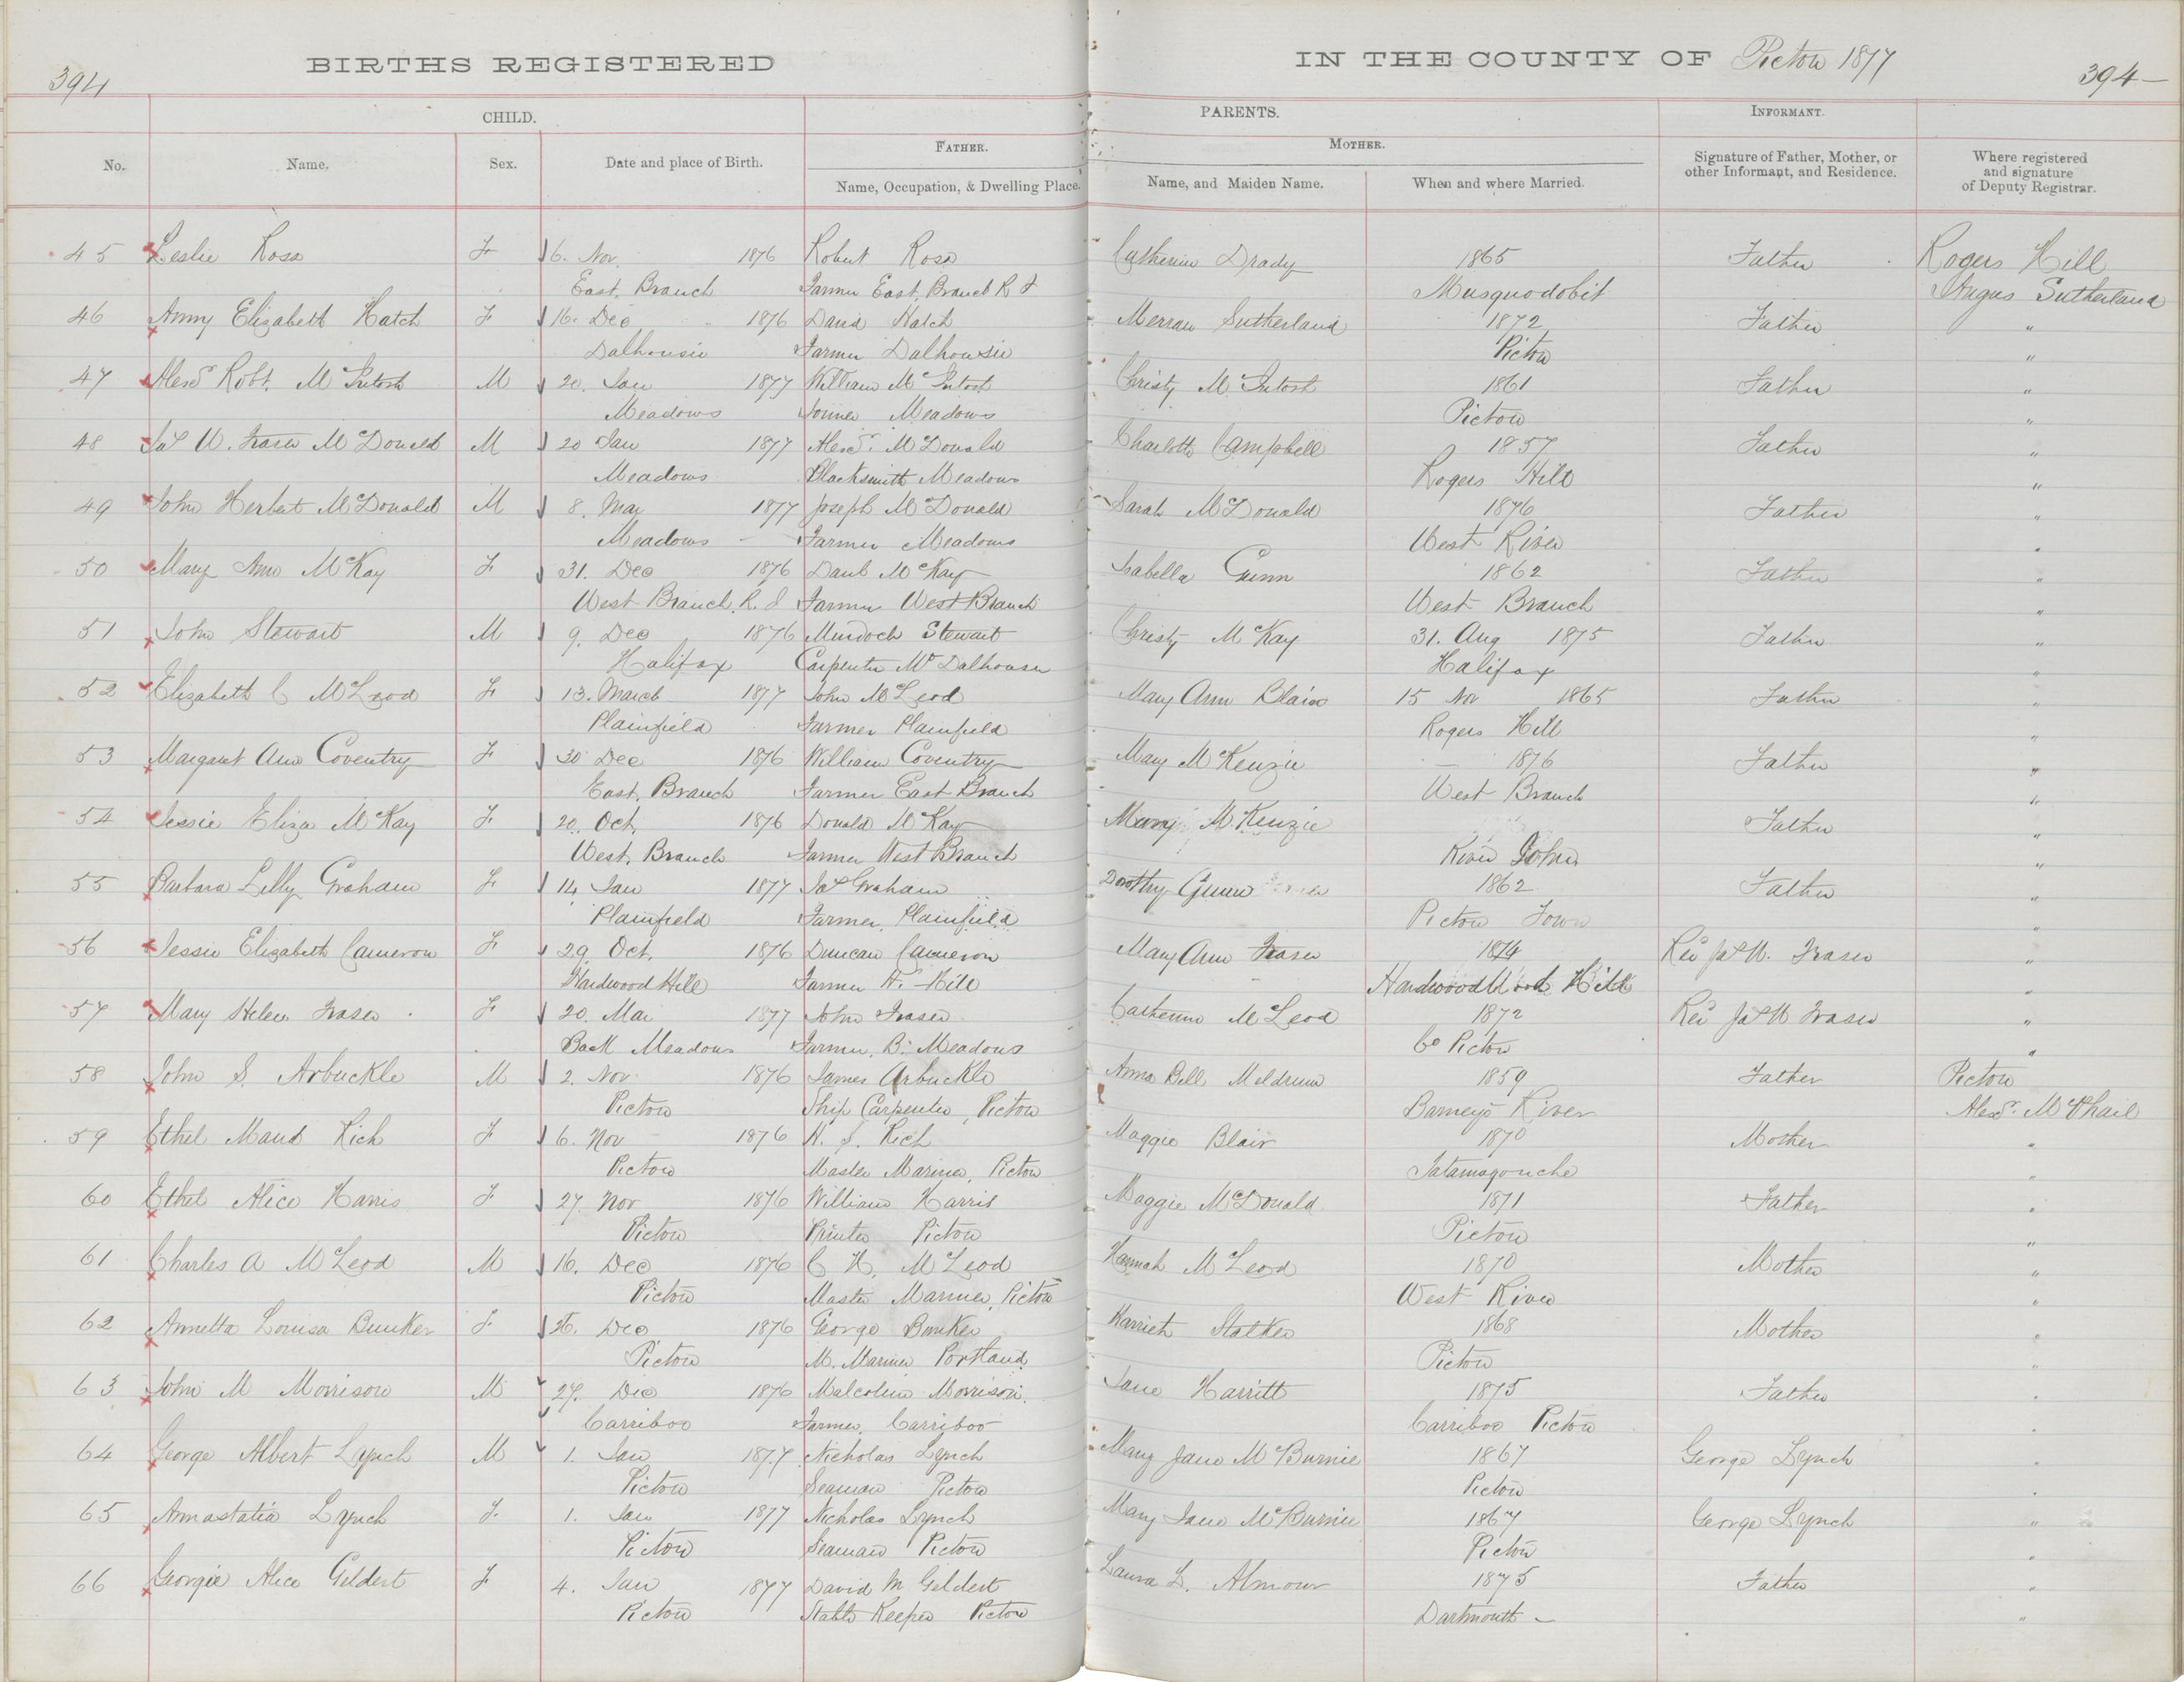 394
BIRTHS REGISTERED IN THE COUNTY OF Pictou 1877
394
CHILD. PARENTS. INFORMANT.
FATHER. MOTHER.
No. Name. Sex. Date and place of Birth. Name, Occupation, & Dwelling Place. Name, and Maiden Name. When and where Married. Signature of Father, Mother, or other Informant, and Residence. Where registered and signature of Deputy Registrar.
45 Leslie Ross F 6. Nov. 1876 Robert Ross Catherine Drady 1865 Father Rogers Hill
East. Branch Farmer East. Branch R J Musquodobit Angus Sutherland
46 Anny Elizabeth Hatch F 16. Dec 1876 David Hatch Merran Sutherland 1872 Father "
Dalhousie Farmer Dalhousie Pictou "
47 Alexr Robt. McIntosh M 20. Jan 1877 William McIntosh Christy McIntosh 1861 Father "
Meadows Joiner Meadows Pictou "
48 Jas W. Fraser McDonald M 20 Jan 1877 Alexr. McDonald Charlotte Campbell 1857 Father "
Meadows Blacksmith Meadows Rogers Hill "
49 John Herbert McDonald M 8. Mar 1877 Joseph McDonald Sarah McDonald 1876 Father "
Meadows Farmer Meadows West River "
50 Mary Ann McKay F 31. Dec 1876 Danl McKay Isabella Gunn 1862 Father "
West Branch. R. J Farmer West Branch West Branch "
51 John Stewart M 9. Dec 1876 Murdoch Stewart Christy McKay 31. Aug 1875 Father "
Halifax Carpenter Mt Dalhousie Halifax "
52 Elizabeth C McLeod F 13. March 1877 John McLeod Mary Ann Blair 15 Nov 1865 Father "
Plainfield Farmer Plainfield Rogers Hill "
53 Margaret Ann Coventry F 30 Dec 1876 William Coventry Mary McKenzie — 1876 Father "
East. Branch Farmer East Branch West Branch "
54 Jessie Eliza McKay F 20. Oct. 1876 Donald McKay Mary McKenzie Father "
West. Branch Farmer West Branch River John "
55 Barbara Lilly Graham F 14 Jan 1877 Jas Graham Dorothy Gunn 1862 Father "
Plainfield Farmer, Plainfield Pictou Town "
56 Jessie Elizabeth Cameron F 29. Oct. 1876 Duncan Cameron Mary Ann Fraser 1874 Rev Jas W. Fraser "
Hardwood Hill Farmer H. Hill Hardwood Hill "
57 Mary Helen Fraser F 20. Mar 1877 John Fraser Catherine McLeod 1872 Rev Jas W Fraser "
Back Meadows Farmer, B. Meadows Co Pictou "
58 John S. Arbuckle M 2. Nov. 1876 James Arbuckle Anna Bell Meldrum 1859 Father Pictou
Pictou Ship Carpenter, Pictou Barneys River Alexr. McPhail
59 Ethel Maud Rich F 6. Nov 1876 H. S. Rich Maggie Blair 1870 Mother "
Pictou Master Mariner, Pictou Tatamagouche "
60 Ethel Alice Harris F 27. Nov 1876 William Harris Maggie McDonald 1871 Father "
Pictou Printer Pictou Pictou "
61 Charles A McLeod M 16. Dec 1876 C H. McLeod Hannah McLeod 1870 Mother "
Pictou Master Mariner, Pictou West River "
62 Annetta Louisa Bunker F 26. Dec 1876 George Bunker Harriet Stalker 1868 Mother "
Pictou M. Mariner Portland Pictou "
63 John M Morrison M 27. Dec 1876 Malcolm Morrison. Jane Harritt 1875 Father "
Carriboo Farmer, Carriboo Carriboo Pictou "
64 George Albert Lynch M 1. Jan 1877 Nicholas Lynch Mary Jane McBurnie 1867 George Lynch "
Pictou Seaman Pictou Pictou "
65 Annastatia Lynch F. 1. Jan 1877 Nicholas Lynch Mary Jane McBurnie 1867 George Lynch "
Pictou Seaman Pictou Pictou "
66 Georgie Alice Geldert F 4. Jan 1877 David M Geldert Laura L. Almour 1875 Father "
Pictou Stable Keeper Pictou Dartmouth — "